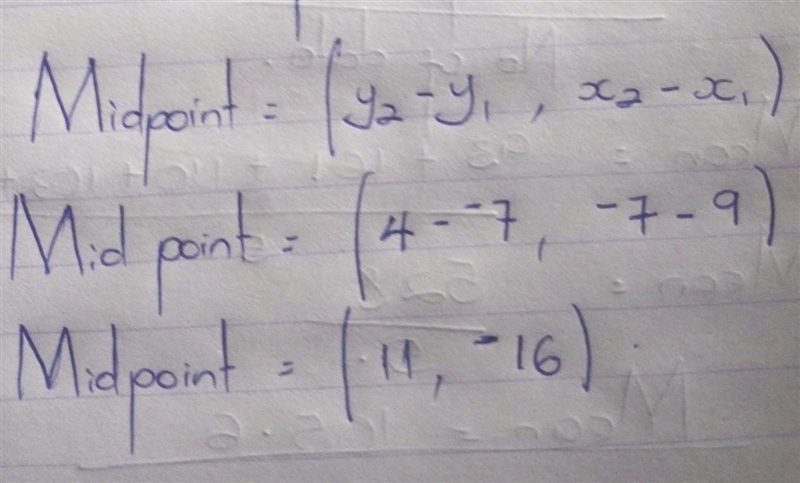 Midpoint = (y₂ - y₁ , x₂ - x₁)
Midpoint = (4 - -7, -7 - 9)
Midpoint = (11, -16)